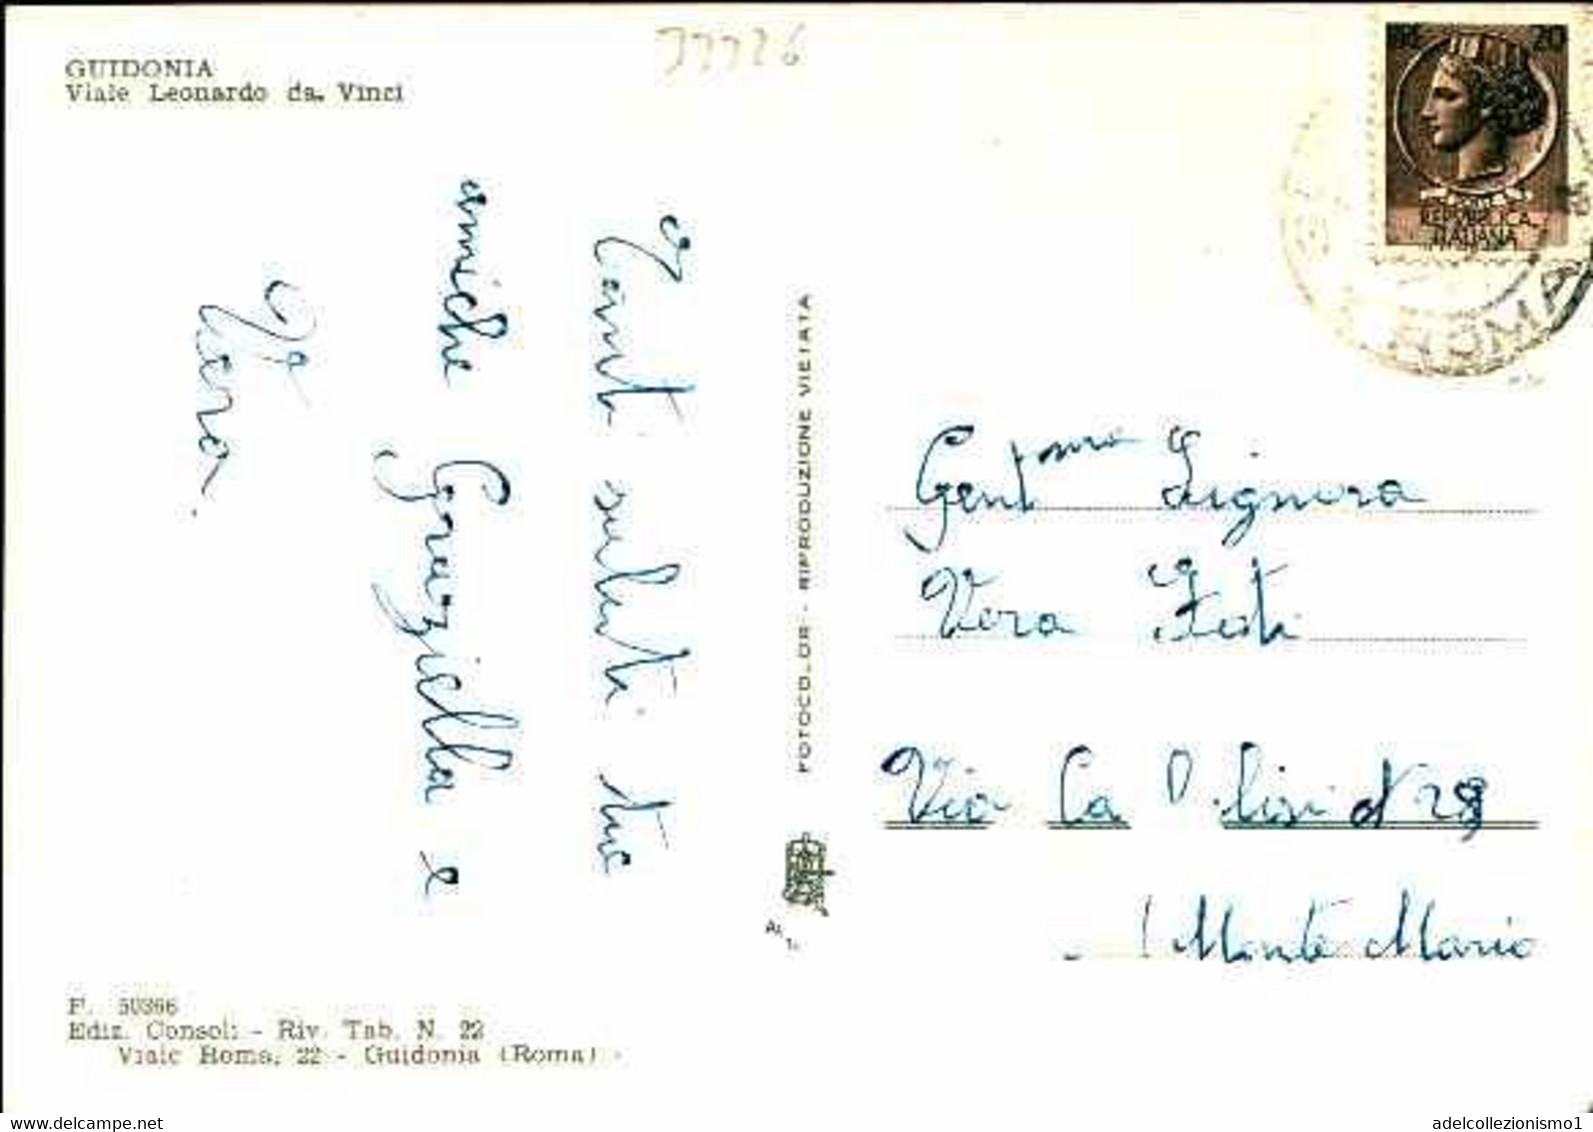 33326
GUIDONIA
Viale Leonardo da Vinci
20
REPUBBLICA
ITALIANA
ROMA
Tanti saluti tue
amiche Graziella e
Vera.
FOTOCOLOR - RIPRODUZIONE VIETATA
Gent.ma Signora
Vera
Via
N 28
Monte Mario
F. 50366
Ediz. Consoli - Riv. Tab. N. 22
Viale Roma, 22 - Guidonia (Roma)
delcampe.net
adelcollezionismo1